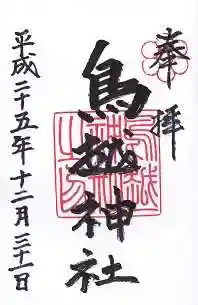 奉拝
鳥越神社
平成二十五年十二月三十一日